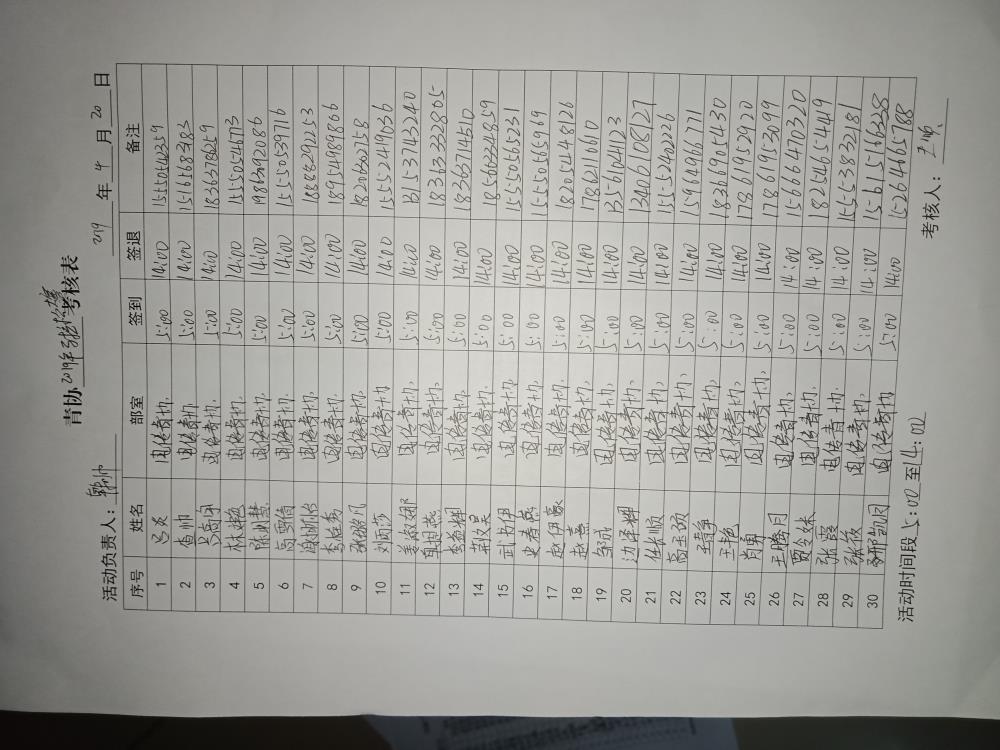 青协2019年考核表
活动负责人：
2019年4月20日
序号 姓名 部室 签到 签退 备注
1 吕炎 电传青协 5:00 14:00 15550542359
2 查帅 电传青协 5:00 14:00 15165683983
3 电传青协 5:00 14:00 18363789259
4 林艳 电传青协 5:00 14:00 15550546773
5 张慧 电传青协 5:00 14:00 19863920786
6 高雪倩 电传青协 5:00 14:00 15550539716
7 电传青协 5:00 14:00 18888292253
8 李 电传青协 5:00 14:00 18954989806
9 电传青协 5:00 14:00 18206302758
10 刘雨莎 电传青协 5:00 14:00 15552749036
11 姜淑娜 电传青协 5:00 14:00 13153743240
12 电传青协 5:00 14:00 18363332805
13 电传青协 5:00 14:00 18363714510
14 电传青协 5:00 14:00 18560324859
15 武书伊 电传青协 5:00 14:00 15550565231
16 史春燕 电传青协 5:00 14:00 15550565969
17 赵伊豪 电传青协 5:00 14:00 18205448126
18 赵喜 电传青协 5:00 14:00 17862116610
19 电传青协 5:00 14:00 13561024123
20 边泽辉 电传青协 5:00 14:00 13406108127
21 任顺 电传青协 5:00 14:00 15552240226
22 高玉颈 电传青协 5:00 14:00 15964966771
23 王静 电传青协 5:00 14:00 18366905430
24 王艳 电传青协 5:00 14:00 17861952920
25 肖勇 电传青协 5:00 14:00 17861953099
26 王腾月 电传青协 5:00 14:00 15616470320
27 贾 电传青协 5:00 14:00 18254654449
28 张霞 电传青协 5:00 14:00 15553832181
29 张俊 电传青协 5:00 14:00 15615166328
30 邢凯月 电传青协 5:00 14:00 15264605788
活动时间段 5:00至14:00
考核人：